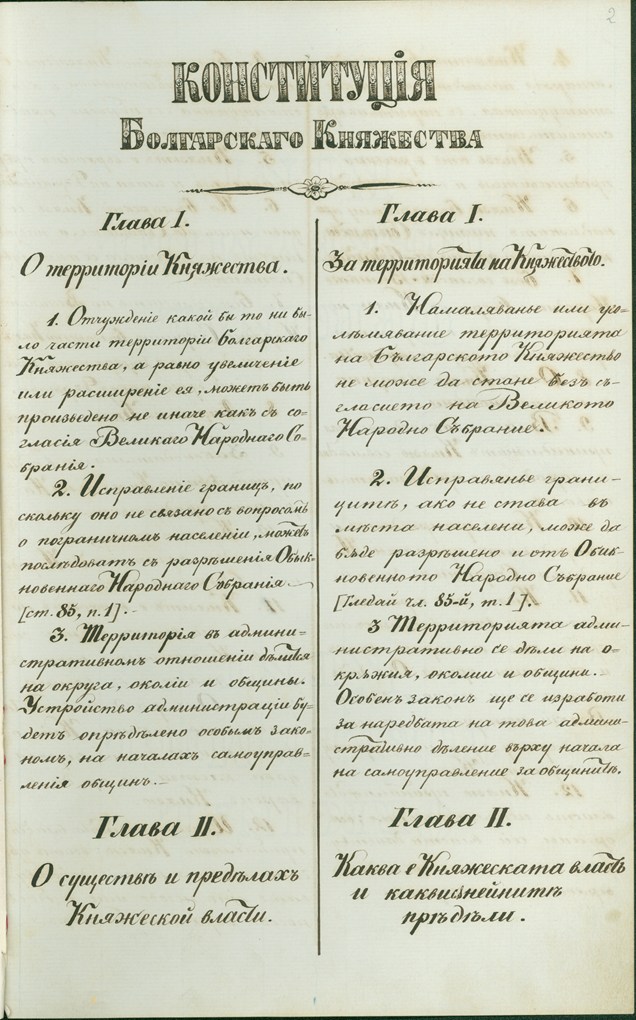 2
КОНСТИТУЦІЯ
БОЛГАРСКАГО КНЯЖЕСТВА
Глава I.
О территоріи Княжества.
1. Отчужденіе какой бы то ни бы-
ло части территоріи Болгарскаго
Княжества, а равно увеличеніе
или расширеніе ея, можетъ быть
произведено не иначе какъ съ со-
гласія Великаго Народнаго Со-
бранія.
2. Исправленіе границъ, по
скольку оно не связано съ вопросомъ
о пограничномъ населеніи, можетъ
послѣдовать съ разрѣшенія Обык-
новеннаго Народнаго Собранія.
[ст. 85, п. 1].-
3. Территорія въ админи=
стративномъ отношеніи дѣлится
на округа, околіи и общины.
Устройство администраціи бу-
детъ опрѣдѣлено особымъ зако-
номъ, на началахъ самоуправ=
ленія общинъ.-
Глава II.
О существѣ и предѣлахъ
Княжеской власти.
Глава I.
За территорията на Княжеството.
1. Намаляванье или уго-
лѣмявание територията
на Българското Княжество
не може да стане безъ съ-
гласието на Великото
Народно Събрание.
2. Исправянье грани-
цитѣ, ако не става въ
мѣста населени, може да
бѫде разрѣшено и отъ Обик-
новенното Народно Събрание
[Гледай чл. 85-й, т. 1].
3 Територията адми-
нистративно се дѣли на о-
крѫжия, околии и общини.-
Особенъ законъ ще се изработи
за наредбата на това админи-
стративно дѣление върху начала
на самоуправление за общинитѣ.
Глава II.
Каква е Княжеската власть
и какви са нейнитѣ
прѣдѣли.